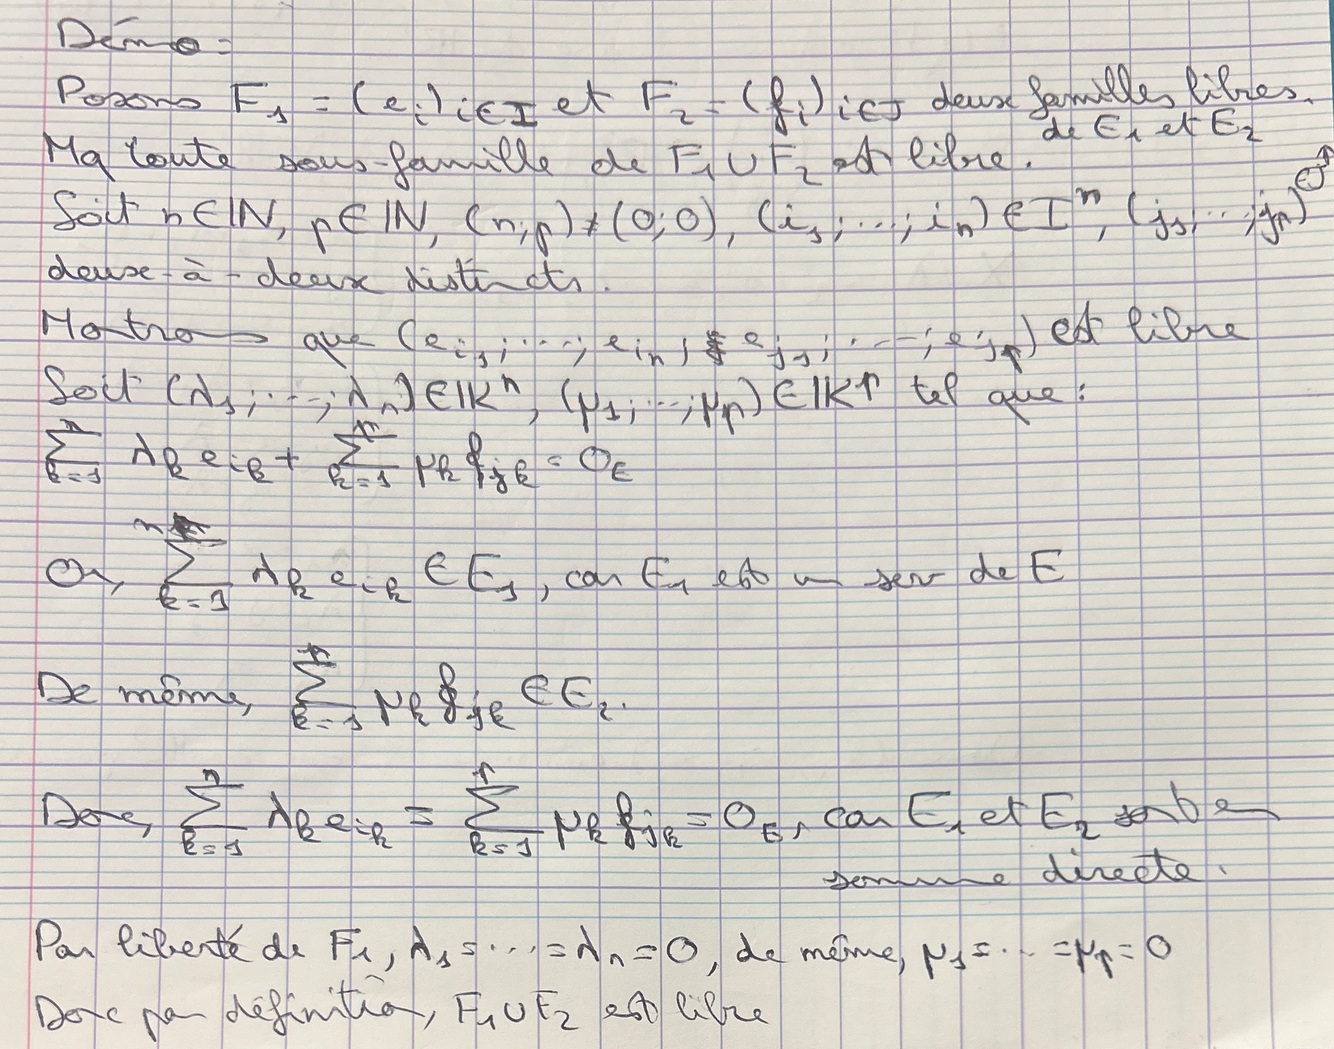 Démo :
Posons F₁ = (e_i)_{i∈I} et F₂ = (f_i)_{i∈J} deux familles libres.
de E₁ et E₂
Mq toute sous-famille de F₁ ∪ F₂ est libre.
Soit n∈ℕ, p∈ℕ, (n;p) ≠ (0;0), (i₁;...;i_n) ∈ I^n, (j₁;...;j_p) ∈ J^p
deux-à-deux distincts.
Montrons que (e_{i₁};...;e_{i_n}; e_{j₁};...;e_{j_p}) est libre
Soit (λ₁;...;λ_n) ∈ 𝕂^n, (μ₁;...;μ_p) ∈ 𝕂^p tel que :
∑_{k=1}^{n} λ_k e_{i_k} + ∑_{k=1}^{p} μ_k f_{j_k} = 0_E
Or, ∑_{k=1}^{n} λ_k e_{i_k} ∈ E₁, car E₁ est un sev de E
De même, ∑_{k=1}^{p} μ_k f_{j_k} ∈ E₂.
Donc, ∑_{k=1}^{n} λ_k e_{i_k} = ∑_{k=1}^{p} μ_k f_{j_k} = 0_E, car E₁ et E₂ sont en
somme directe.
Par liberté de F₁, λ₁ = ... = λ_n = 0, de même, μ₁ = ... = μ_p = 0
Donc par définition, F₁ ∪ F₂ est libre